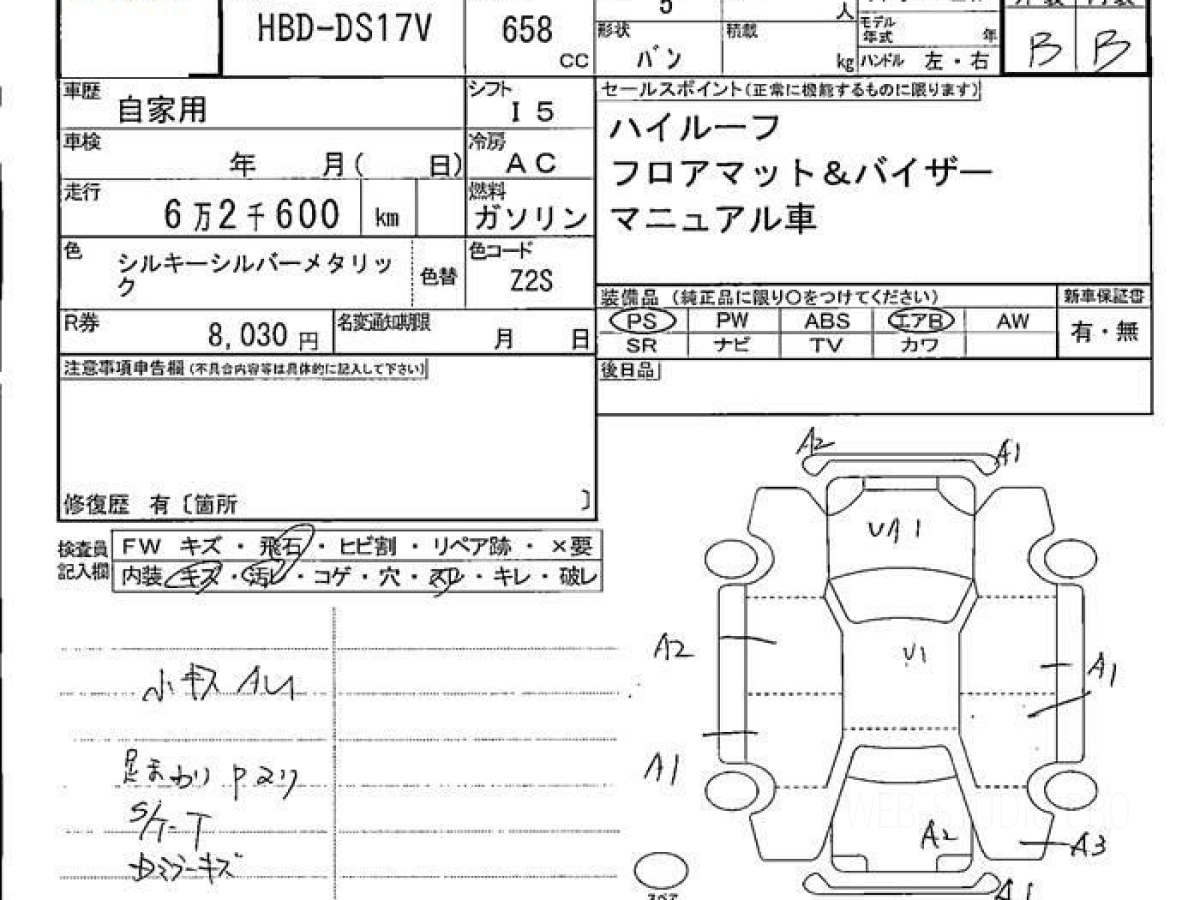 HBD-DS17V
658
CC
5
人
形状
バン
積載
kg
モデル
年式
年
ハンドル 左・右
B B
車歴
自家用
シフト
I5
セールスポイント(正常に機能するものに限ります)
ハイルーフ
フロアマット&バイザー
マニュアル車
車検
年 月( 日)
冷房
AC
走行
6万2千600 km
燃料
ガソリン
色
シルキーシルバーメタリッ
ク
色替
色コード
Z2S
装備品 (純正品に限り○をつけてください)
新車保証書
PS PW ABS エアB AW
SR ナビ TV カワ
有・無
R券
8,030 円
名変通知期限
月 日
注意事項申告欄(不具合内容等は具体的に記入して下さい)
後日品
修復歴 有〔箇所 〕
検査員
記入欄
FW キズ・飛石・ヒビ割・リペア跡・×要
内装 キズ・汚レ・コゲ・穴・スレ・キレ・破レ
小キズ AU
足まわり Pコリ
S/ケ-T
ミラーキズ
A2 A1
UA1
A2
U1
A1
A1
A2
A3
A1
スペア